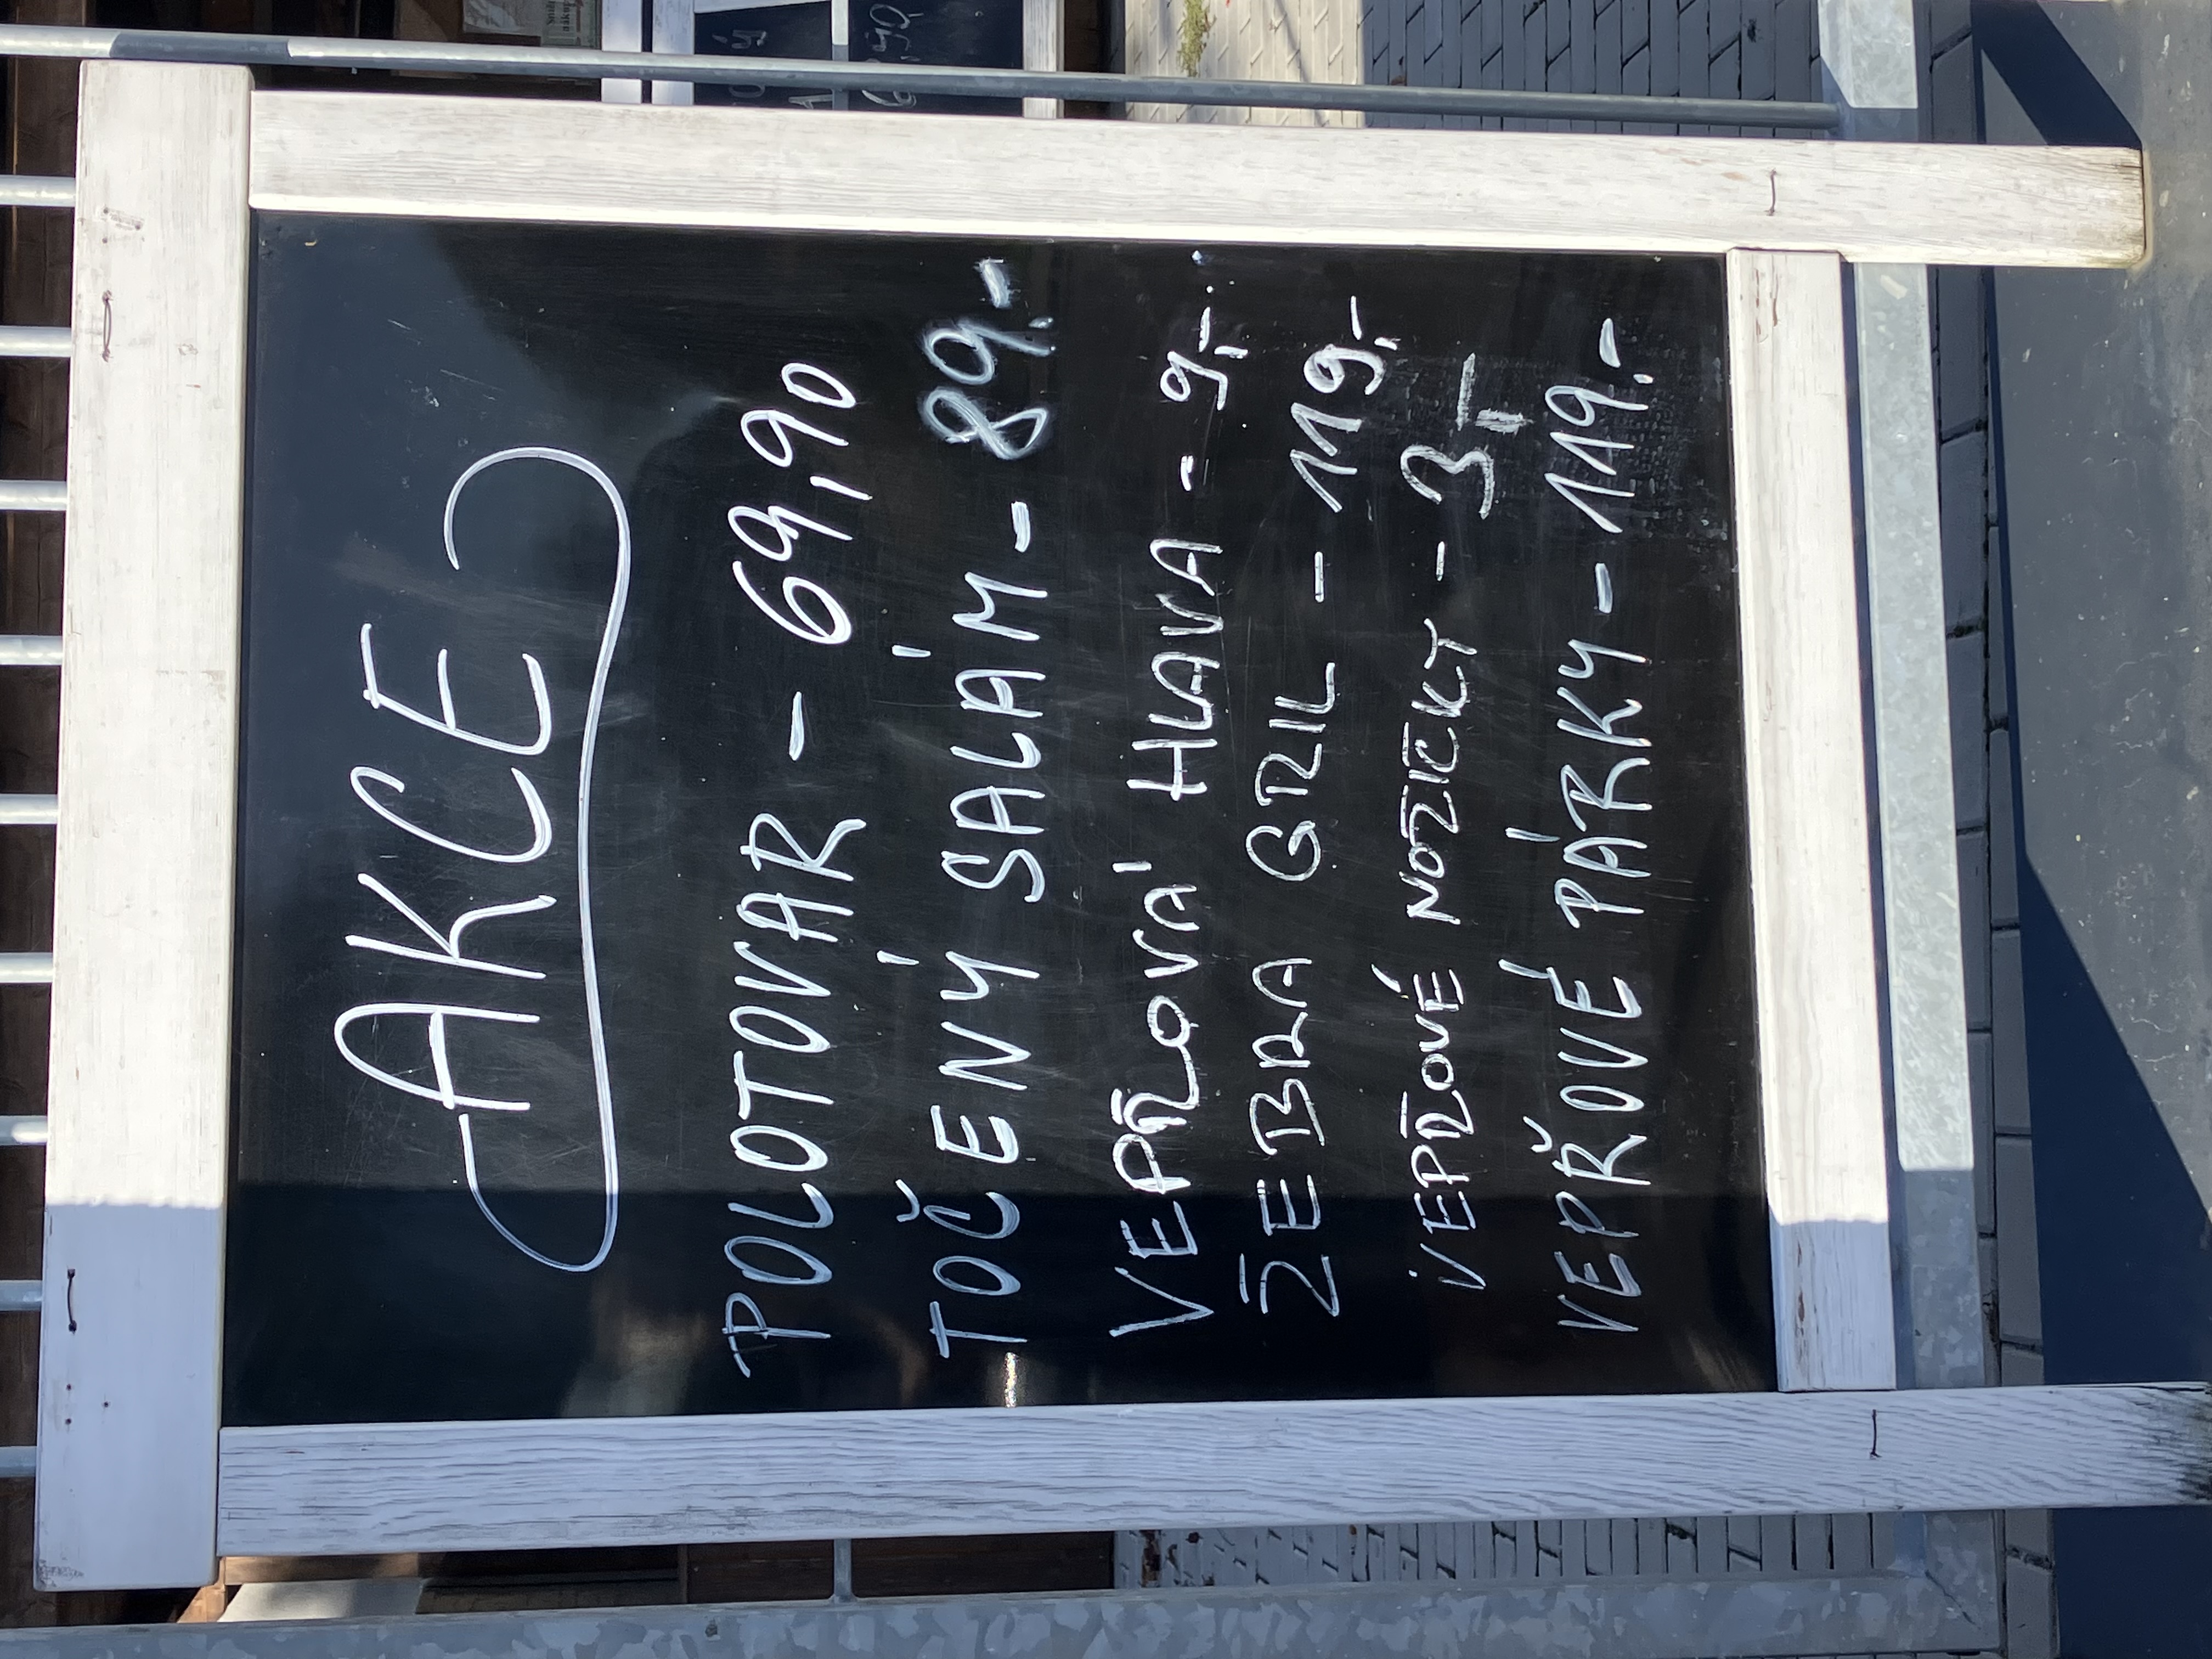 AKCE
POLOTOVAR - 69,90
TOČENÝ SALÁM - 89,-
VEPŘOVÁ HLAVA - 9,-
ŽEBRA GRIL - 119,-
VEPŘOVÉ NOŽIČKY - 3,-
VEPŘOVÉ PÁRKY - 119.-